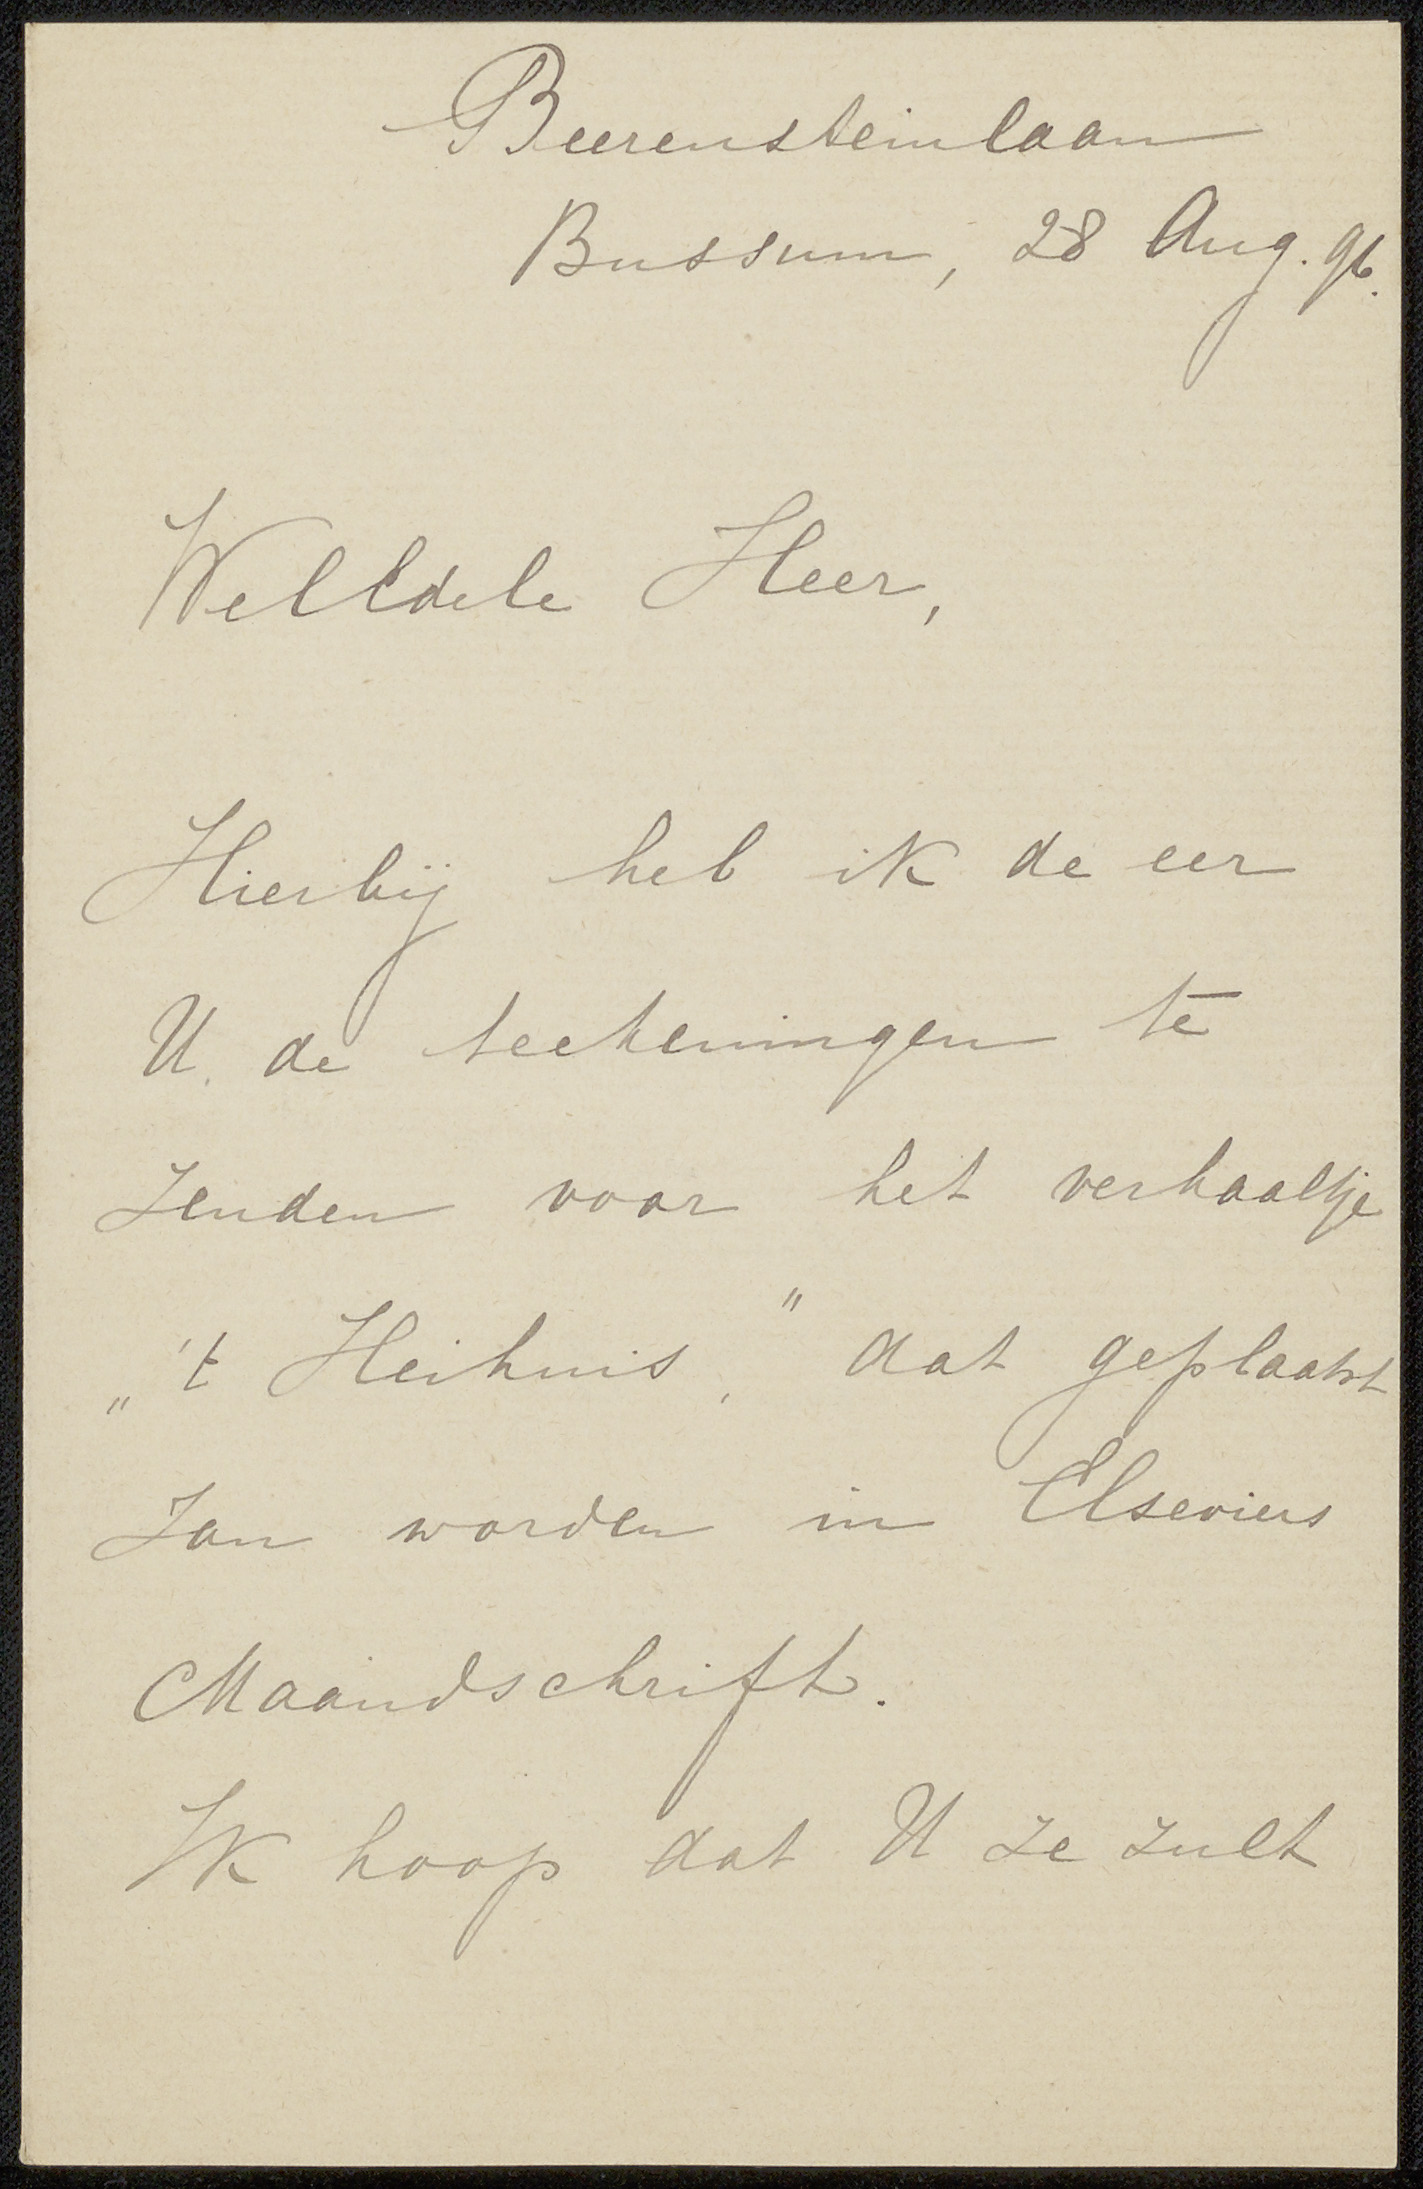 Beerensteinlaan
Bussum, 28 Aug. 96.
WelEdele Heer,
Hierbij heb ik de eer
U de teekeningen te
zenden voor het verhaaltje
„'t Heihuis," dat geplaatst
zou worden in Elseviers
Maandschrift.
Ik hoop dat U ze zult